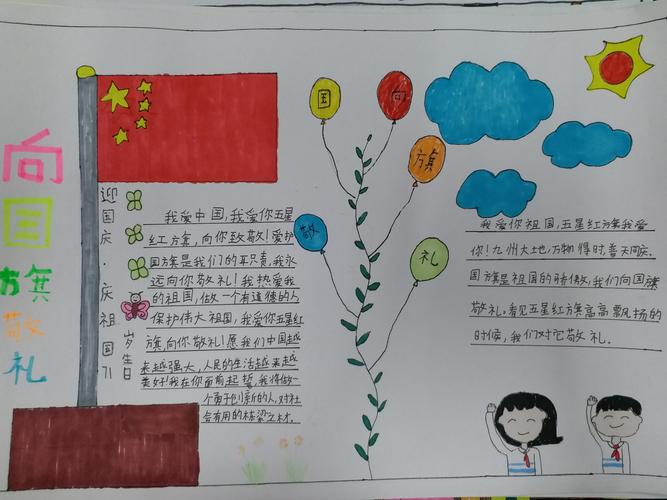 向国旗敬礼
迎国庆·庆祝祖国71岁生日
我爱中国，我爱你五星
红旗，向你致敬！爱护
国旗是我们的职责，我永
远向你敬礼！我热爱我
的祖国，做一个有道德的人
保护伟大祖国，我爱你五星红
旗，向你敬礼！愿我们中国越
来越强大，人民的生活越来越
美好！我在你面前起誓，我将做一
个勇于创新的人，对社
会有用的栋梁之材。
国
向
旗
敬
礼
我爱你祖国，五星红旗我爱
你！九州大地，万物得时，普天同庆。
国旗是祖国的骄傲，我们向国旗
敬礼。看见五星红旗高高飘扬的
时候，我们对它敬礼。